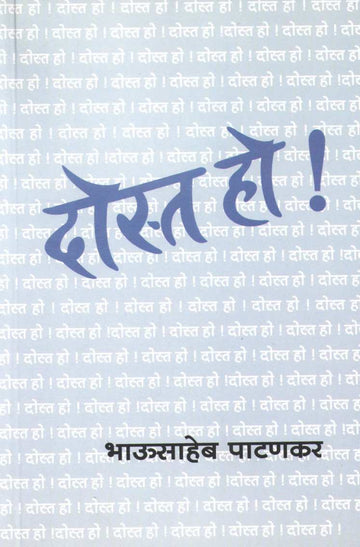 दोस्त हो ! दोस्त हो ! दोस्त हो ! दोस्त हो ! दोस्त हो !
दोस्त हो ! दोस्त हो ! दोस्त हो ! दोस्त हो ! दोस्त हो !
दोस्त हो ! दोस्त हो ! दोस्त हो ! दोस्त हो ! दोस्त हो !
दोस्त हो ! दोस्त हो ! दोस्त हो ! दोस्त हो ! दोस्त हो !
दोस्त हो ! दोस्त हो ! दोस्त हो ! दोस्त हो ! दोस्त हो !
दोस्त हो !
दोस्त हो ! दोस्त हो ! दोस्त हो ! दोस्त हो ! दोस्त हो !
दोस्त हो ! दोस्त हो ! दोस्त हो ! दोस्त हो ! दोस्त हो !
दोस्त हो ! दोस्त हो ! दोस्त हो ! दोस्त हो ! दोस्त हो !
दोस्त हो ! दोस्त हो ! दोस्त हो !दोस्त हो ! दोस्त हो !
दोस्त हो ! दोस्त हो ! दोस्त हो !दोस्त हो ! दोस्त हो !
भाऊसाहेब पाटणकर
दोस्त हो ! दोस्त हो ! दोस्त हो !दोस्त हो ! दोस्त हो !
दोस्त हो ! दोस्त हो ! दोस्त हो !दोस्त हो ! दोस्त हो !
दोस्त हो !दोस्त हो ! दोस्त हो ! दोस्त हो ! दोस्त हो !